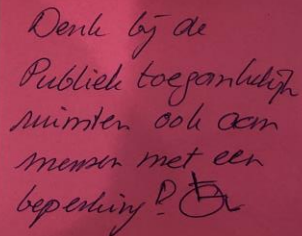 Denk bij de
Publiek toegankelijk
ruimten ook aan
mensen met een
beperking!